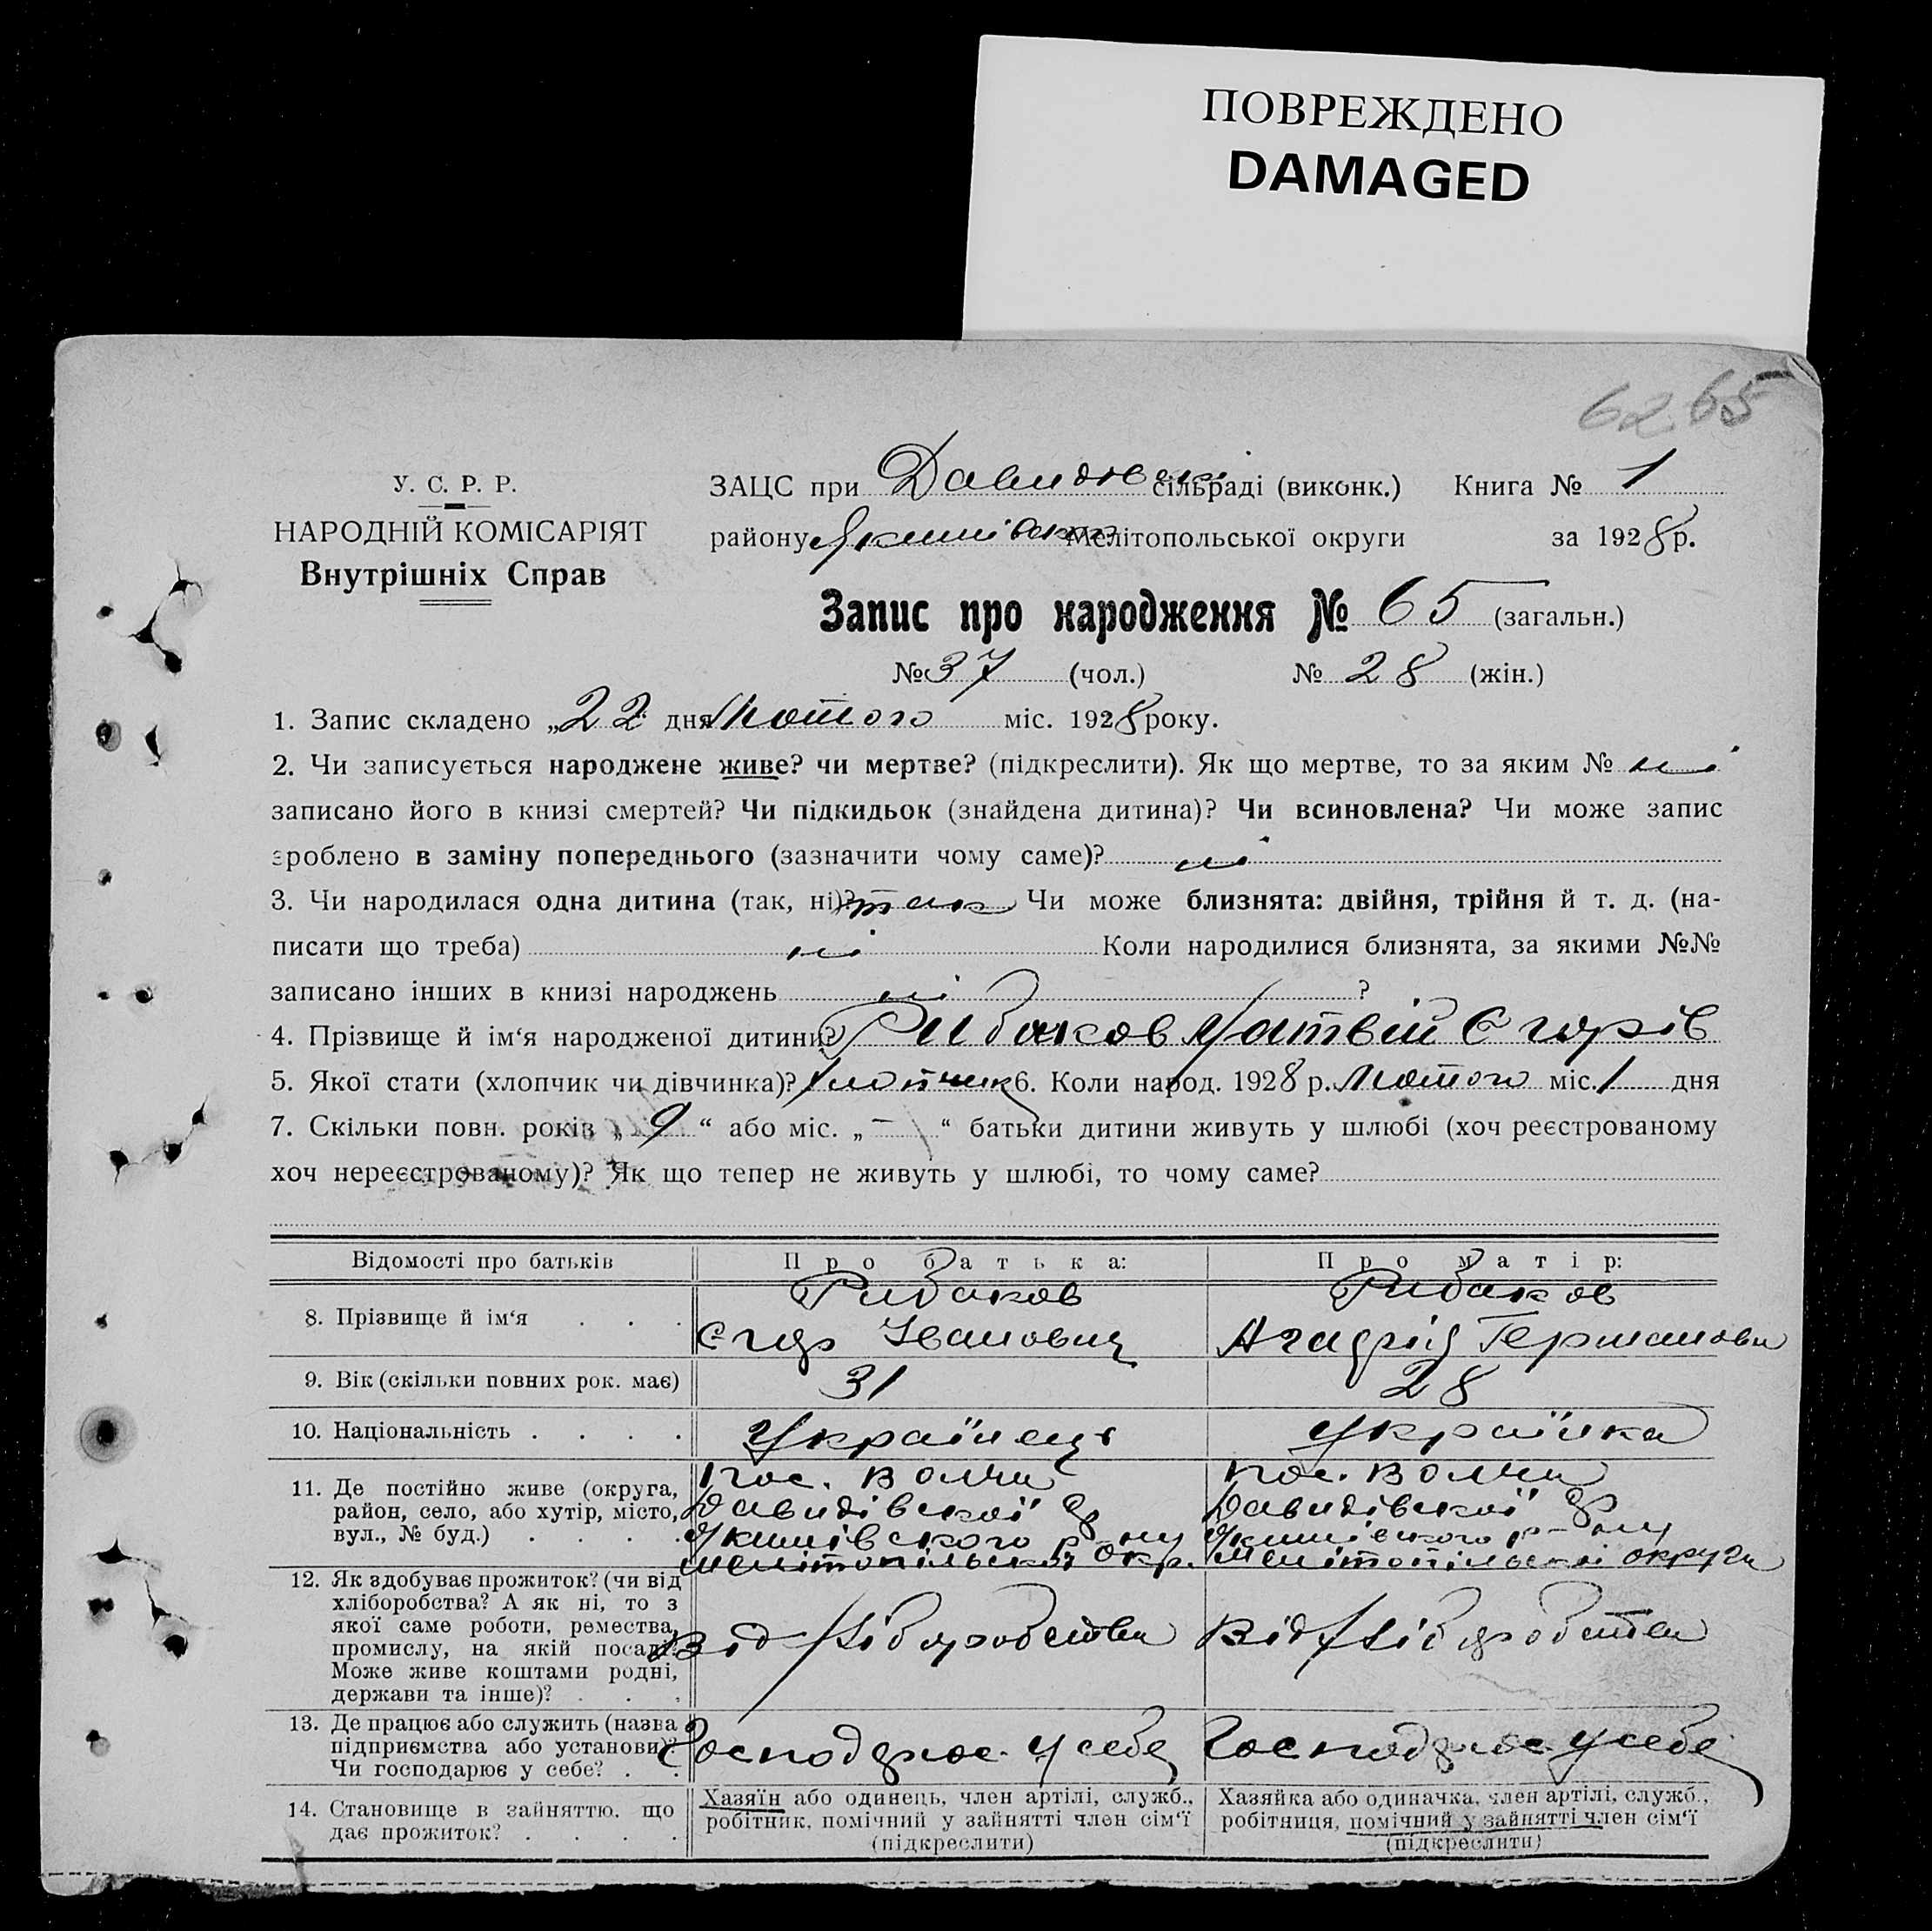 ПОВРЕЖДЕНО
DAMAGED
62 65
У. С. Р. Р.
НАРОДНІЙ КОМІСАРІЯТ
Внутрішніх Справ
ЗАЦС при Давидовскі сільраді (виконк.) Книга № 1
району Якимівсько Мелітопольської округи за 1928 р.
Запис про народження № 65 (загальн.)
№ 37 (чол.) № 28 (жін.)
1. Запис складено „22 дня Лютого міс. 1928 року.
2. Чи записується народжене живе? чи мертве? (підкреслити). Як що мертве, то за яким № ні
записано його в книзі смертей? Чи підкидьок (знайдена дитина)? Чи всиновлена? Чи може запис
зроблено в заміну попереднього (зазначити чому саме)? ні
3. Чи народилася одна дитина (так, ні)? так Чи може близнята: двійня, трійня й т. д. (на-
писати що треба) ні Коли народилися близнята, за якими №№
записано інших в книзі народжень ні ?
4. Прізвище й ім‘я народженої дитини? Рибаков Матвій Єгорів
5. Якої стати (хлопчик чи дівчинка)? Хлопчик 6. Коли народ. 1928 р. Лютого міс. 1 дня
7. Скільки повн. років „ 9 “ або міс. „ – “ батьки дитини живуть у шлюбі (хоч реєстрованому
хоч нереєстрованому)? Як що тепер не живуть у шлюбі, то чому саме?
Відомості про батьків Про батька: Про матір:
8. Прізвище й ім‘я . . . Рибаков Єгор Іванович Рибаков Германовн
9. Вік (скільки повних рок. має) 31 28
10. Національність . . . . Українець Українка
11. Де постійно живе (округа,
район, село, або хутір, місто,
вул., № буд.) . . . .
Пос. Волчи
Давидівскої
Якимівского р-ну
Мелітопільскої окр.
Пос. Волчи
Давидівскої
Якимівского р-ну
Мелітопільскої округи
12. Як здобуває прожиток? (чи від
хліборобства? А як ні, то з
якої саме роботи, ремества,
промислу, на якій посаді?
Може живе коштами родні,
держави та інше)? . . .
Від Хліборобства Від Хліборобства
13. Де працює або служить (назва
підприємства або установи)?
Чи господарює у себе? . .
Господарює у себе Господарює у себе
14. Становище в зайняттю, що
дає прожиток? . . . .
Хазяїн або одинець, член артілі, служб.,
робітник, помічний у зайнятті член сім‘ї
(підкреслити)
Хазяйка або одиначка, член артілі, служб.,
робітниця, помічний у зайнятті член сім‘ї
(підкреслити)